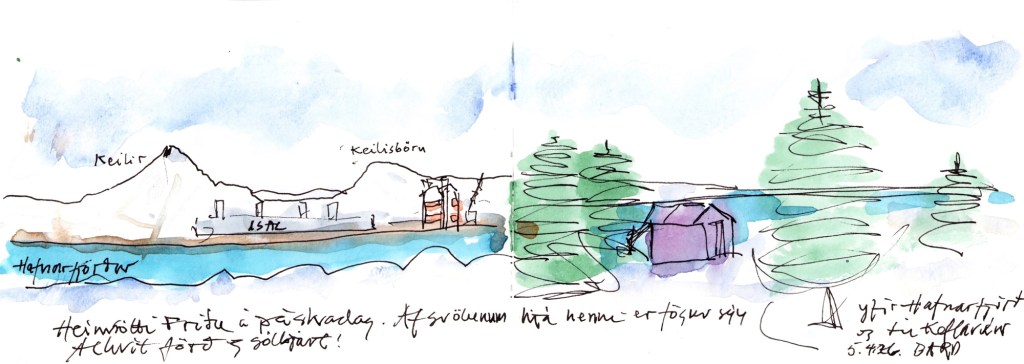 Keilir
Keilisbörn
ISAL
Hafnarfjörður
Heimsótti Fríðu á páskadag. Af svölunum hjá henni er fögur sýn
yfir Hafnarfjörð
og til Keflavíkur
Alhvít jörð og sólbjart!
5.4.26.